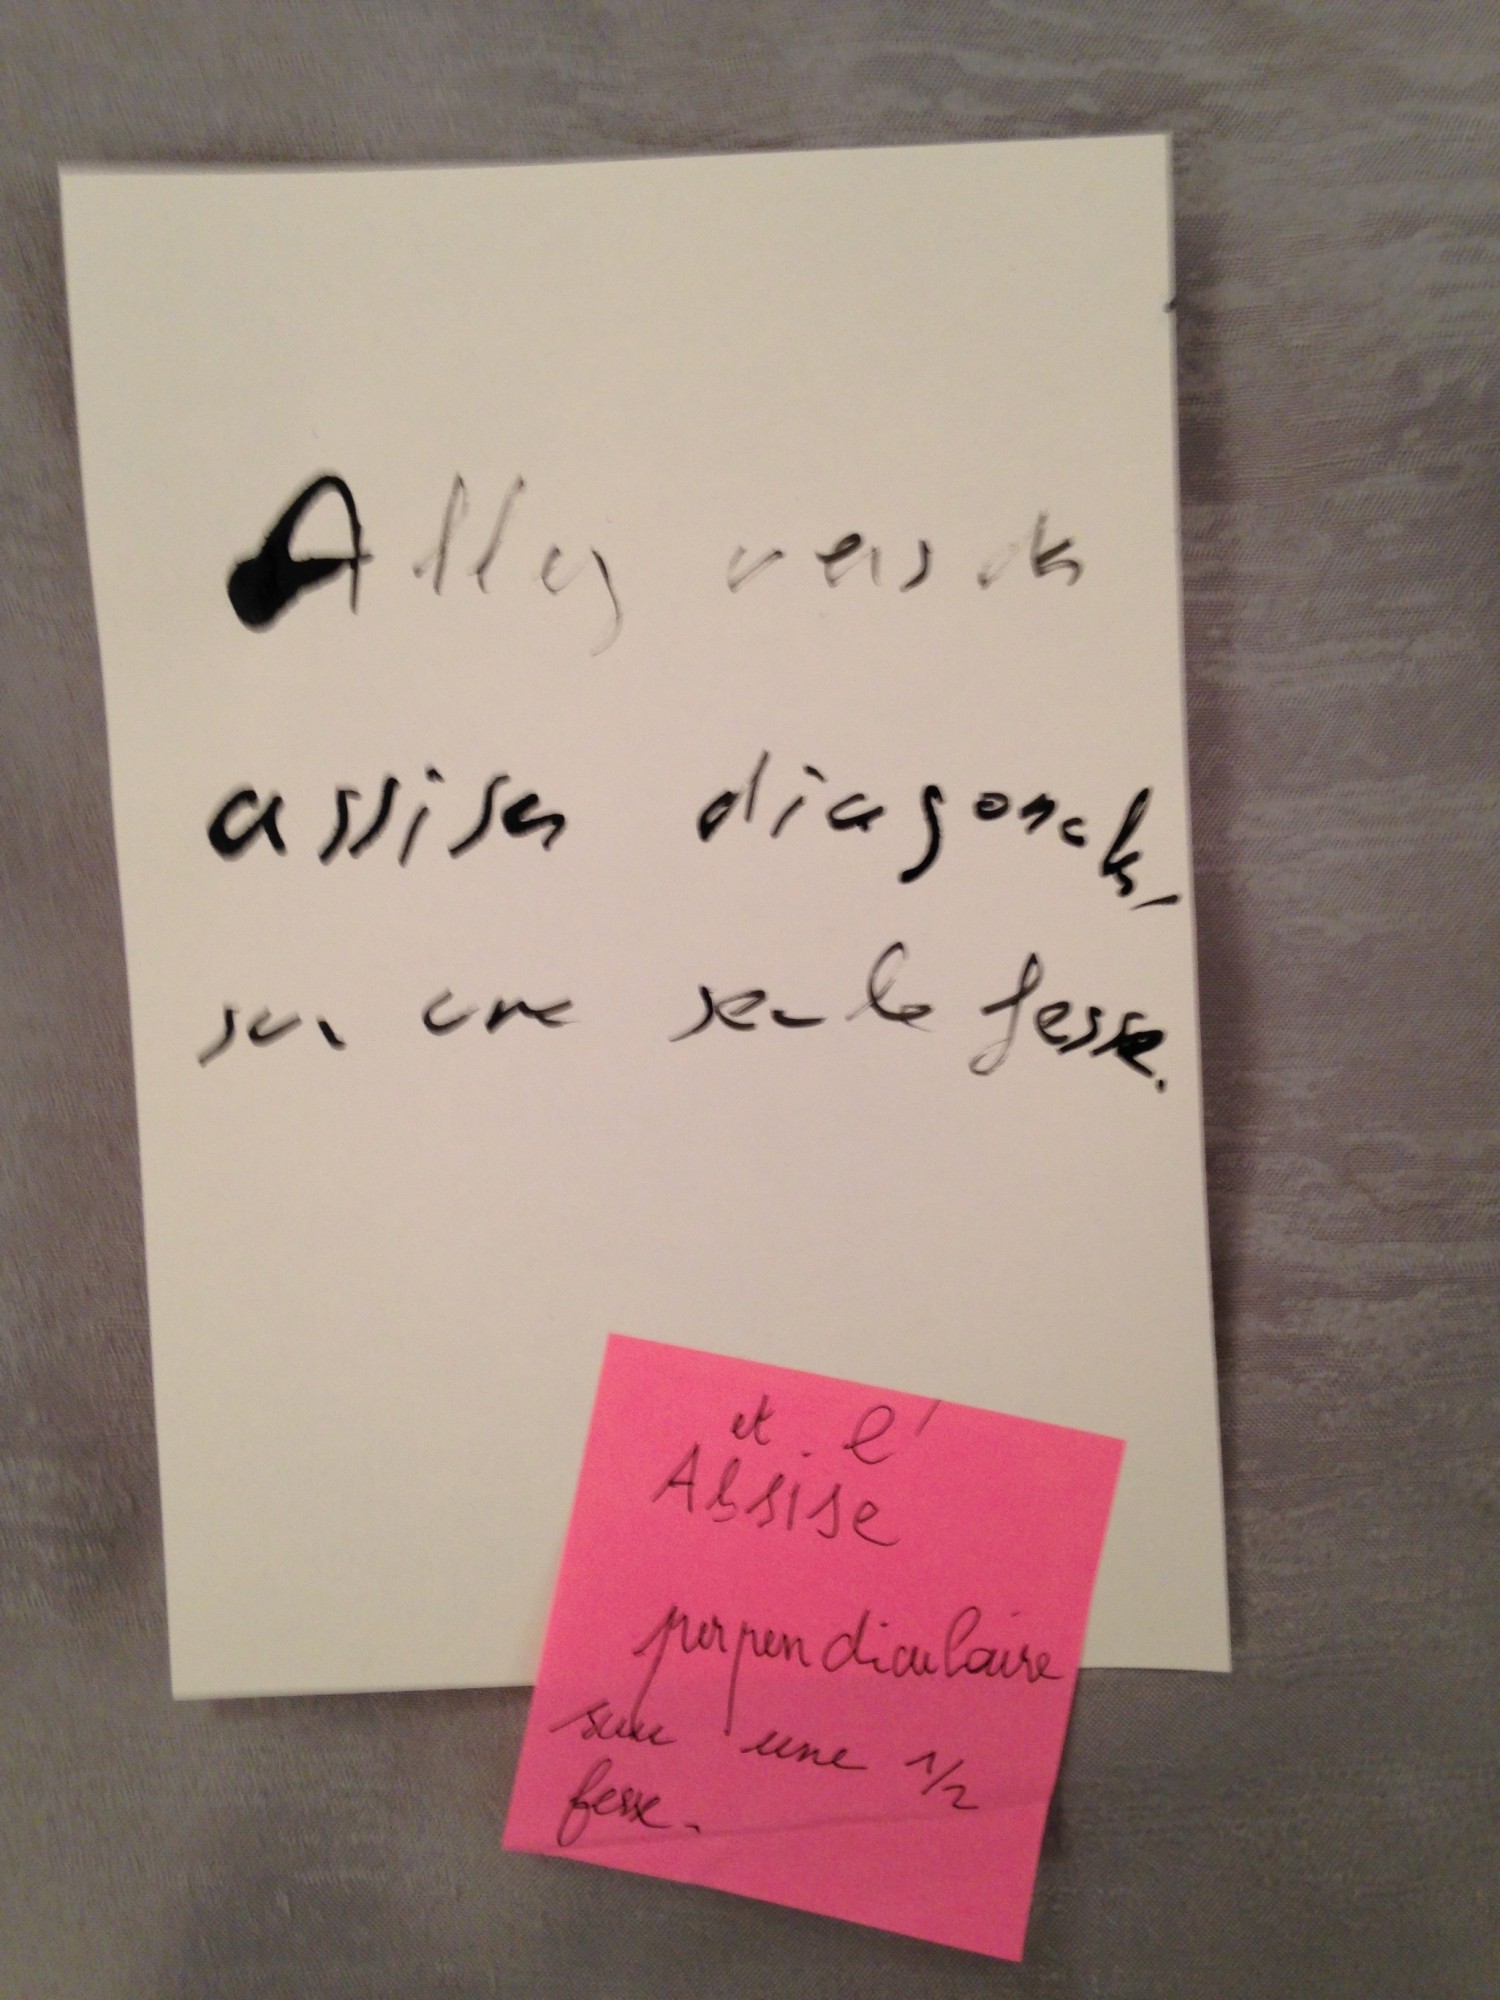 Allez vers ds
assises diagonales,
sur une seule fesse.
et l'
Assise
perpendiculaire
sur une 1/2
fesse.